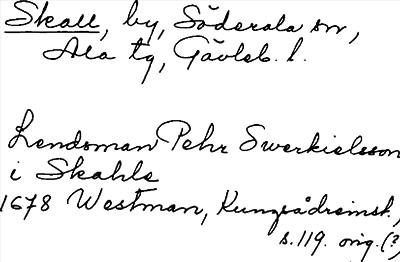 Skall, by, Söderala sn,
Ala tg, Gävleb. l.
Lendsman Pehr Swerkielsson
i Skahle
1678 Westman, Kungsådreinst.,
s. 119. orig. (?)